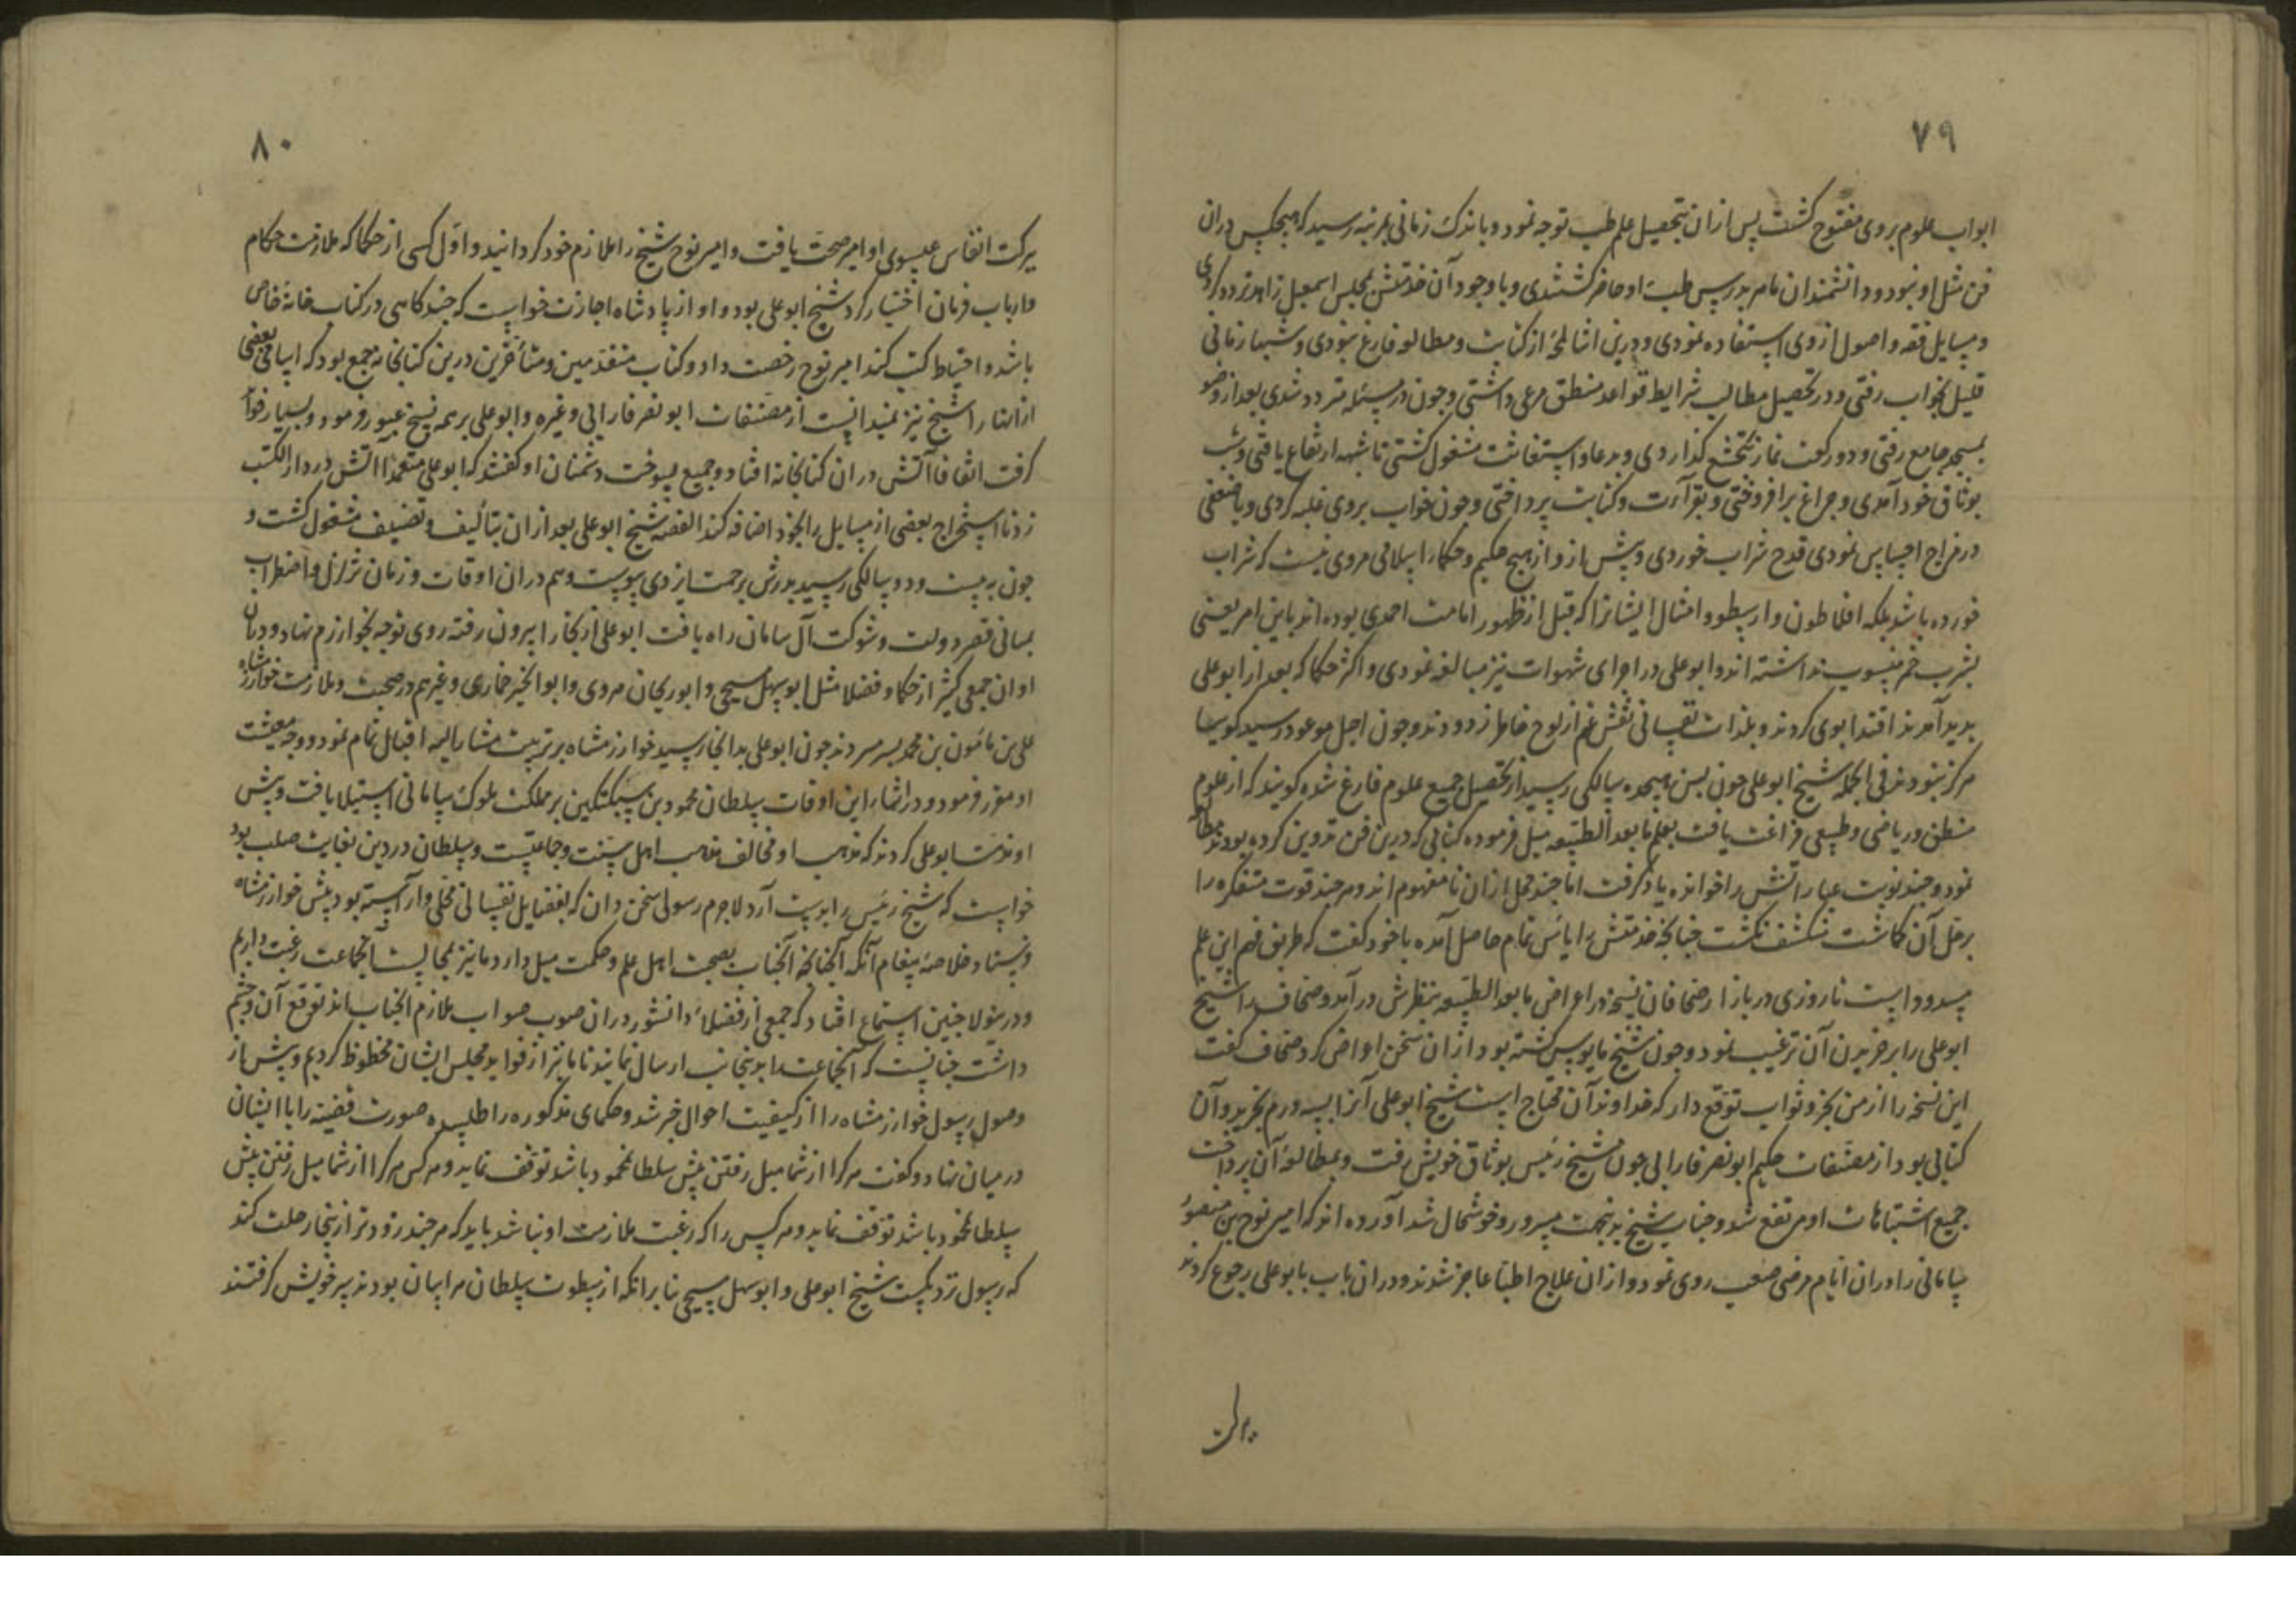 ۷۹
ابواب علوم بروی مفتوح کشت پس ازان بتحصیل علم طب توجه نمود و باندک زمانی بمرتبه رسید که هیچکس دران
فن مثل او نبود و دانشمندان ماهر بدرس طب او حاضر کشتندی و با وجود آن خدمتش بمجلس اسمعیل زاهد تردد کردی
و مسایل فقه و اصول ازوی استفاده نمودی و درین اثنا لمحهٔ از کتابت و مطالعه فارغ نبودی و شبها زمانی
قلیل بخواب رفتی و در تحصیل مطالب شرایط قواعد منطق مرعی داشتی و چون در مسئله متردد شدی بعد از وضو
بمسجد جامع رفتی و دو رکعت نماز بتخشع کذاردی و بدعا و استغاثت مشغول کشتی تا شبهه ارتفاع یافتی و شب
بوثاق خود آمدی و چراغ برافروختی و بقرآءت و کتابت پرداختی و چون خواب بروی غلبه کردی و یا ضعفی
در مزاج احساس نمودی قدح شراب خوردی و پیش ازو از هیچ حکیم و حکماء اسلامی مروی نیست که شراب
خورده باشد بلکه افلاطون و ارسطو و امثال ایشانرا که قبل از ظهور امامت احمدی بوده اند باین امر یعنی
بشرب خمر منسوب نداشته اند و ابوعلی در اجرای شهوات نیز مبالغه نمودی و اکثر حکما که بعد از ابوعلی
پدید آمدند اقتدا بوی کردند و بلذات نفسانی نقش غم از لوح خاطر زدودند و چون اجل موعود رسید کوییا
هرکز نبودند فی الجمله شیخ ابوعلی چون بسن هیجده سالکی رسید از تحصیل جمیع علوم فارغ شده کویند که از علوم
منطق و ریاضی و طبیعی فراغت یافت بعلم ما بعد الطبیعه میل فرموده کتابی که درین فن تدوین کرده بودند مطالعه
نمود و چند نوبت عباراتش را خوانده یاد کرفت اما چند محل ازان نامفهوم ماند و هر چند قوت متفکره را
بر حل آن کماشت منکشف نکشت چنانچه خدمتش را یاس تمام حاصل آمده با خود کفت که طریق فهم این علم
مسدود است تا روزی در بازار صحافان نسخهٔ در اغراض ما بعد الطبیعه بنظرش درآمد و صحاف شیخ
ابوعلی را بر خریدن آن ترغیب نمود و چون شیخ مایوس کشته بود ازان سخن اعراض کرد صحاف کفت
این نسخه را از من بخر و ثواب توقع دار که خداوند آن محتاج است شیخ ابوعلی آنرا بسه درم بخرید و آن
کتابی بود از مصنفات حکیم ابو نصر فارابی چون شیخ رئیس بوثاق خویش رفت و بمطالعهٔ آن پرداخت
جمیع اشتباهات او مرتفع شد و جناب شیخ بدین جهت مسرور و خوشحال شد آورده اند که امیر نوح بن منصور
سامانی را دران ایام مرضی صعب روی نمود و ازان علاج اطبا عاجز شدند و دران باب بابوعلی رجوع کردند
برکت
۸۰
برکت انفاس عیسوی او امیر صحت یافت و امیر نوح شیخ را ملازم خود کردانید و اول کسی از حکما که ملازمت حکام
و ارباب فرمان اختیار کرد شیخ ابوعلی بود و او از پادشاه اجازت خواست که چند کاهی در کتاب خانهٔ خاص
باشد و احتیاط کتب کند امیر نوح رخصت داد و کتاب متقدمین و متأخرین درین کتابخانه جمع بود که اسامی بعضی
ازانها را شیخ نیز نمیدانست از مصنفات ابو نصر فارابی و غیره و ابوعلی بر همه نسخ عبور فرمود و بسیار فواید
کرفت اتفاقا آتش دران کتابخانه افتاد و جمیع بسوخت دشمنان او کفتند که ابوعلی متعمدا آتش در دار الکتب
زد تا استخراج بعضی از مسایل را بخود اضافه کند القصه شیخ ابوعلی بعد ازان بتألیف و تصنیف مشغول کشت و
چون به بیست و دو سالکی رسید پدرش برحمت ایزدی پیوست و هم دران اوقات و زمان تزلزل و اضطراب
بمبانی قصر دولت و شوکت آل سامان راه یافت ابوعلی از بخارا بیرون رفته روی توجه بخوارزم نهاد و دران
اوان جمعی کثیر از حکما و فضلا مثل ابوسهل مسیحی و ابوریحان مروی و ابوالخیر خماری و غیرهم در صحبت و ملازمت خوارزمشاه
علی بن مأمون بن محمد بسر میبردند چون ابوعلی بدانجا رسید خوارزمشاه بر تربیت مشار الیه اقبال تمام نمود و وجه معیشت
او مقرر فرمود و در اثناء این اوقات سلطان محمود بن سبکتکین بر مملکت ملوک سامانی استیلا یافت و پیش
او مذمت ابوعلی کردند که مذهب او مخالف مذهب اهل سنت و جماعتست و سلطان در دین بغایت صلب بود
خواست که شیخ رئیس را بدست آرد لاجرم رسولی سخن دان که بفضایل نفسانی محلی و آراسته بود پیش خوارزمشاه
فرستاد خلاصهٔ پیغام آنکه آنچنانکه آنجناب بصحبت اهل علم و حکمت میل دارد ما نیز بمجالست آنجماعت رغبت داریم
و درینولا چنین استماع افتاد که جمعی از فضلاء دانشور دران صوب صواب ملازم آنجناب اند توقع آن چشم
داشت چنانست که آنجماعت را بدینجانب ارسال نمایند تا ما نیز از فواید مجلس ایشان محظوظ کردیم و پیش از
وصول رسول خوارزمشاه را از کیفیت احوال خبر شد و حکمای مذکوره را طلبیده صورت قضیه را با ایشان
در میان نهاد و کفت هرکرا از شما میل رفتن پیش سلطانمحمود باشد توقف نماید و هر کس هرکرا از شما میل رفتن پیش
سلطانمحمود باشد توقف نماید و هر کس را که رغبت ملازمت او نباشد باید که هر چند زودتر ازینجا رحلت کند
که رسول نزدیکست شیخ ابوعلی و ابوسهل مسیحی بنا برانکه از سطوت سلطان هراسان بودند سر خویش کرفتند